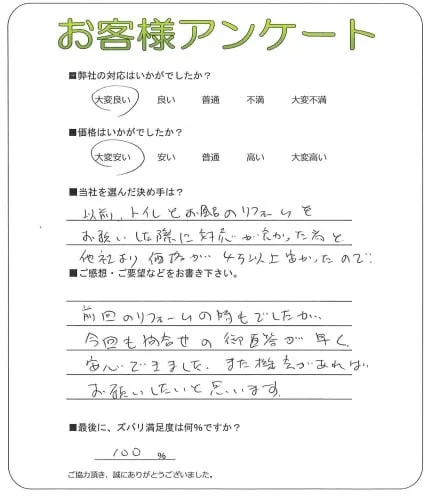 お客様アンケート
■弊社の対応はいかがでしたか？
大変良い 良い 普通 不満 大変不満
■価格はいかがでしたか？
大変安い 安い 普通 高い 大変高い
■当社を選んだ決め手は？
以前、トイレとお風呂のリフォームを
お願いした際に対応が良かった為と
他社より価格が4万以上安かったので
■ご感想・ご要望などをお書き下さい。
前回のリフォームの時もでしたが、
今回も問合せの御返答が早く
安心できました。また機会があれば
お願いしたいと思います。
■最後に、ズバリ満足度は何％ですか？
100 ％
ご協力頂き、誠にありがとうございました。